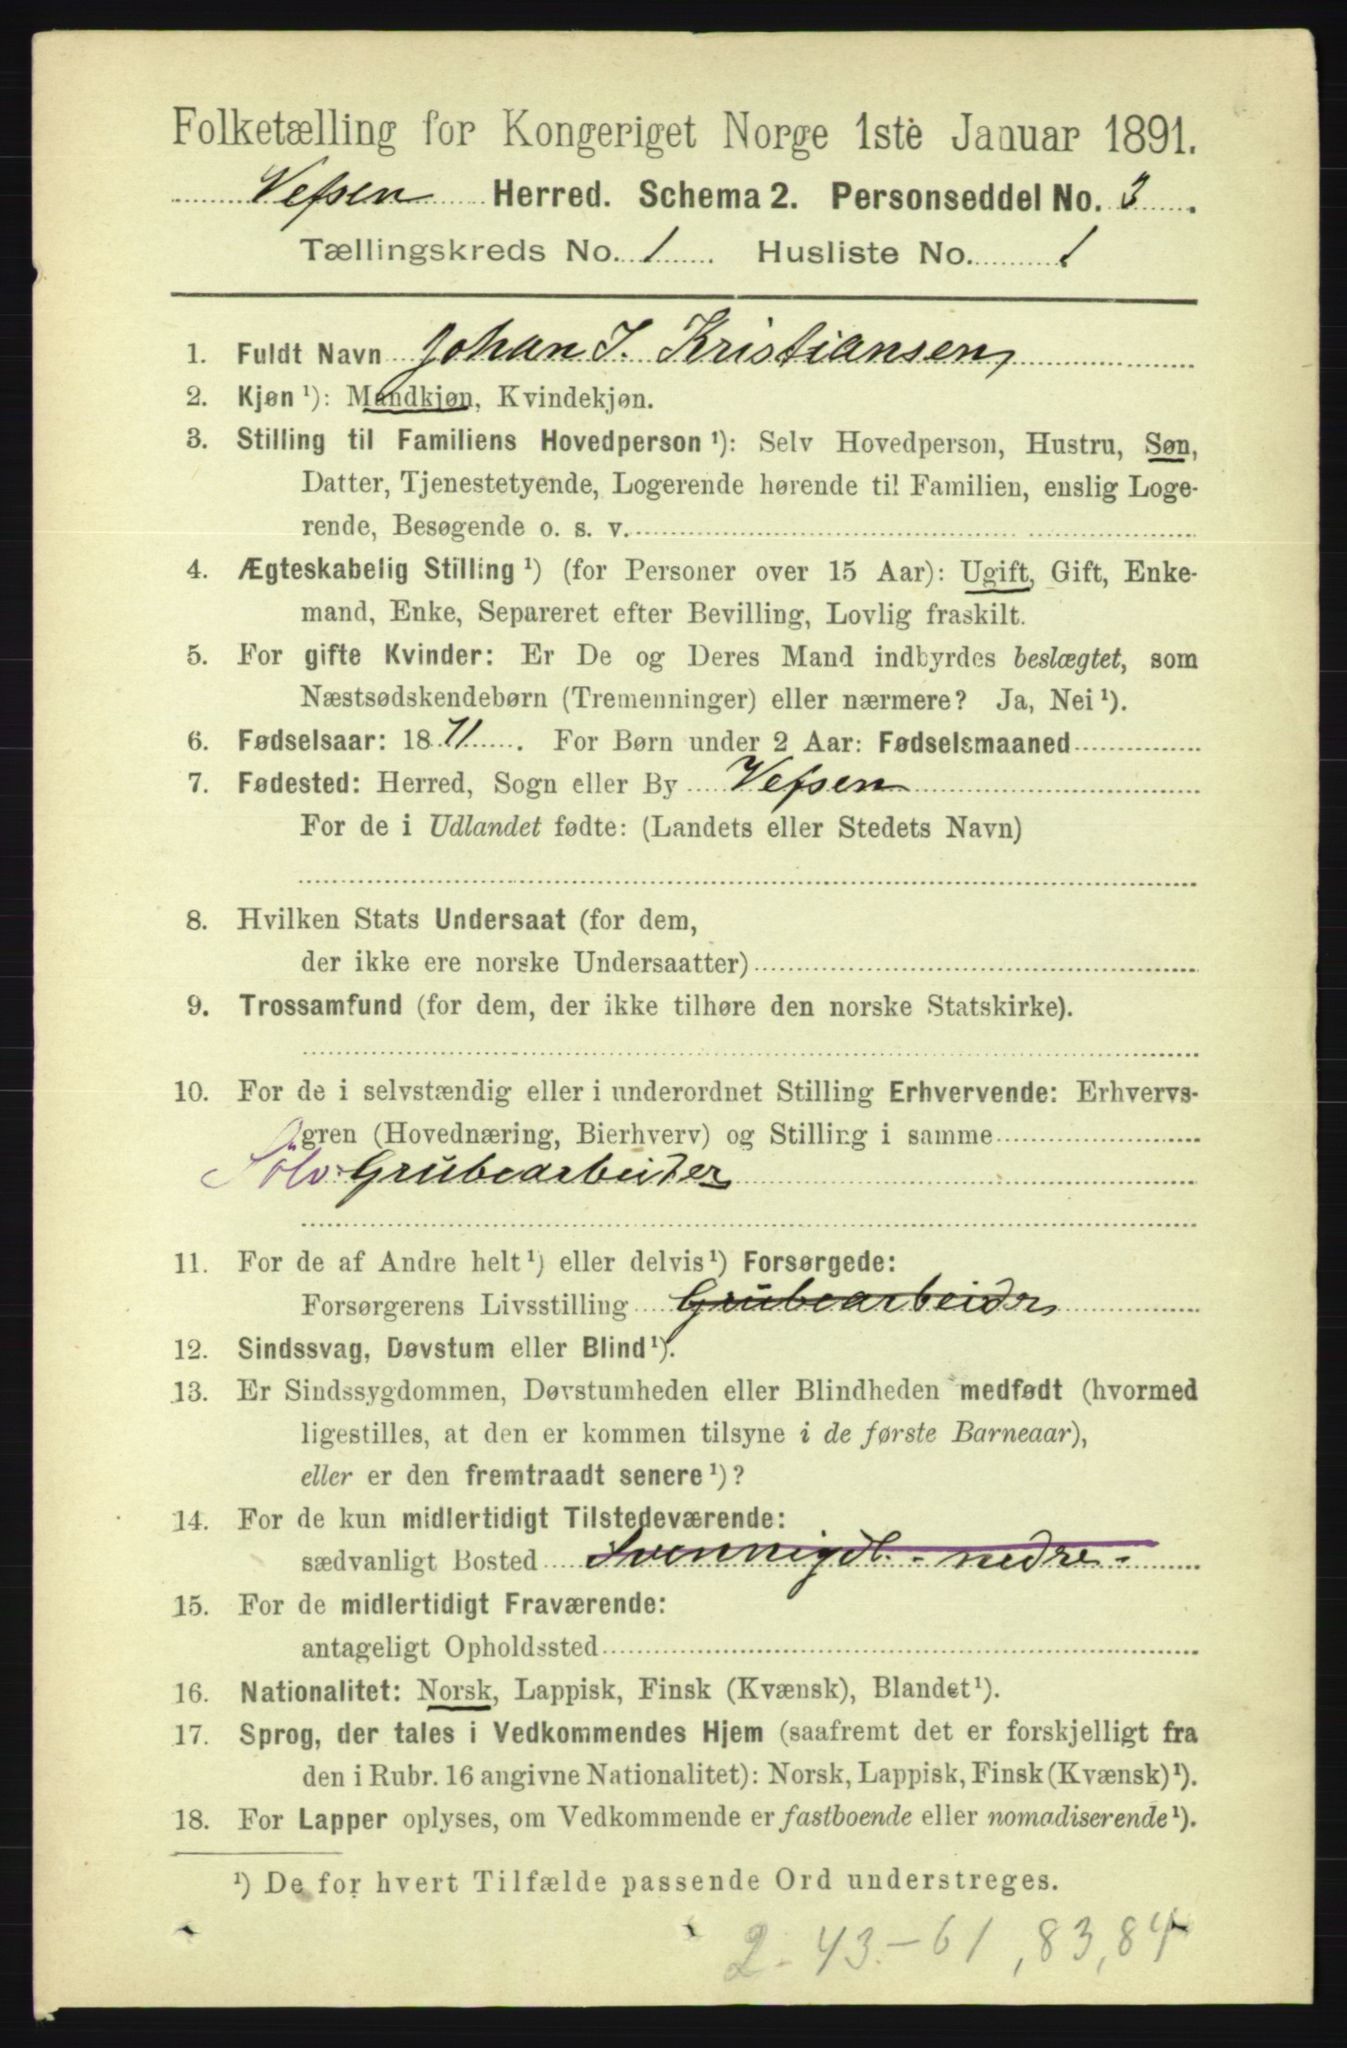 Folketælling for Kongeriget Norge 1ste Januar 1891.
Vefsen Herred. Schema 2. Personseddel No. 3.
Tællingskreds No. 1. Husliste No. 1
1. Fuldt Navn Johan I. Kristiansen,
2. Kjøn ¹): Mandkjøn, Kvindekjøn.
3. Stilling til Familiens Hovedperson ¹): Selv Hovedperson, Hustru, Søn,
Datter, Tjenestetyende, Logerende hørende til Familien, enslig Loge-
rende, Besøgende o. s. v.
4. Ægteskabelig Stilling ¹) (for Personer over 15 Aar): Ugift, Gift, Enke-
mand, Enke, Separeret efter Bevilling, Lovlig fraskilt.
5. For gifte Kvinder: Er De og Deres Mand indbyrdes beslægtet, som
Næstsødskendebørn (Tremenninger) eller nærmere? Ja, Nei ¹).
6. Fødselsaar: 1871. For Børn under 2 Aar: Fødselsmaaned
7. Fødested: Herred, Sogn eller By Vefsen
For de i Udlandet fødte: (Landets eller Stedets Navn)
8. Hvilken Stats Undersaat (for dem,
der ikke ere norske Undersaatter)
9. Trossamfund (for dem, der ikke tilhøre den norske Statskirke).
10. For de i selvstændig eller i underordnet Stilling Erhvervende: Erhvervs-
gren (Hovednæring, Bierhverv) og Stilling i samme
Sølv Grubearbeider
11. For de af Andre helt ¹) eller delvis ¹) Forsørgede:
Forsørgerens Livsstilling Grubearbeider
12. Sindssvag, Døvstum eller Blind ¹).
13. Er Sindssygdommen, Døvstumheden eller Blindheden medfødt (hvormed
ligestilles, at den er kommen tilsyne i de første Barneaar),
eller er den fremtraadt senere ¹)?
14. For de kun midlertidigt Tilstedeværende:
sædvanligt Bosted Svennigdl. nedre.
15. For de midlertidigt Fraværende:
antageligt Opholdssted
16. Nationalitet: Norsk, Lappisk, Finsk (Kvænsk), Blandet ¹).
17. Sprog, der tales i Vedkommendes Hjem (saafremt det er forskjelligt fra
den i Rubr. 16 angivne Nationalitet): Norsk, Lappisk, Finsk (Kvænsk) ¹).
18. For Lapper oplyses, om Vedkommende er fastboende eller nomadiserende ¹).
¹) De for hvert Tilfælde passende Ord understreges.
2-43.-61,83,84